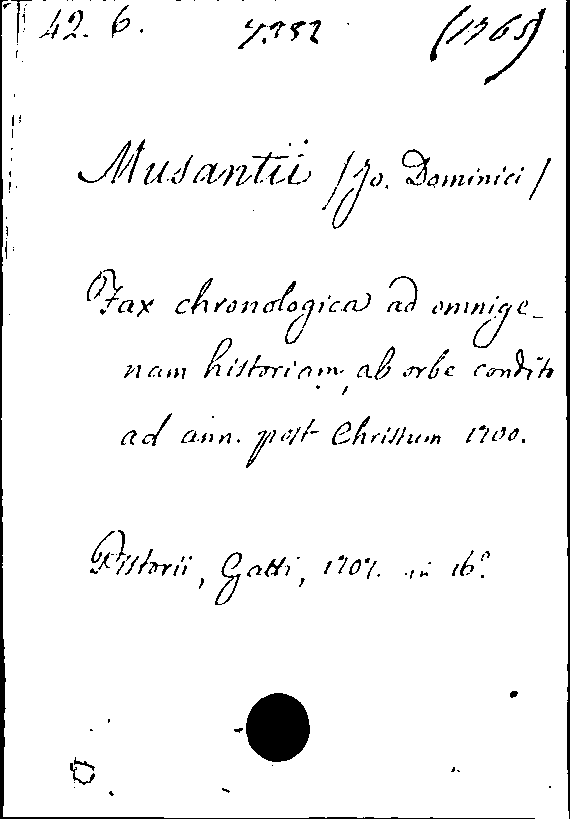 42. 6. 7.352 (1765)
Musantii /Jo. Dominici/
Fax chronologica ad omnige-
nam historiam, ab orbe condito
ad ann. post Christum 1700.
Pistorii, Gatti, 1707. in 16º